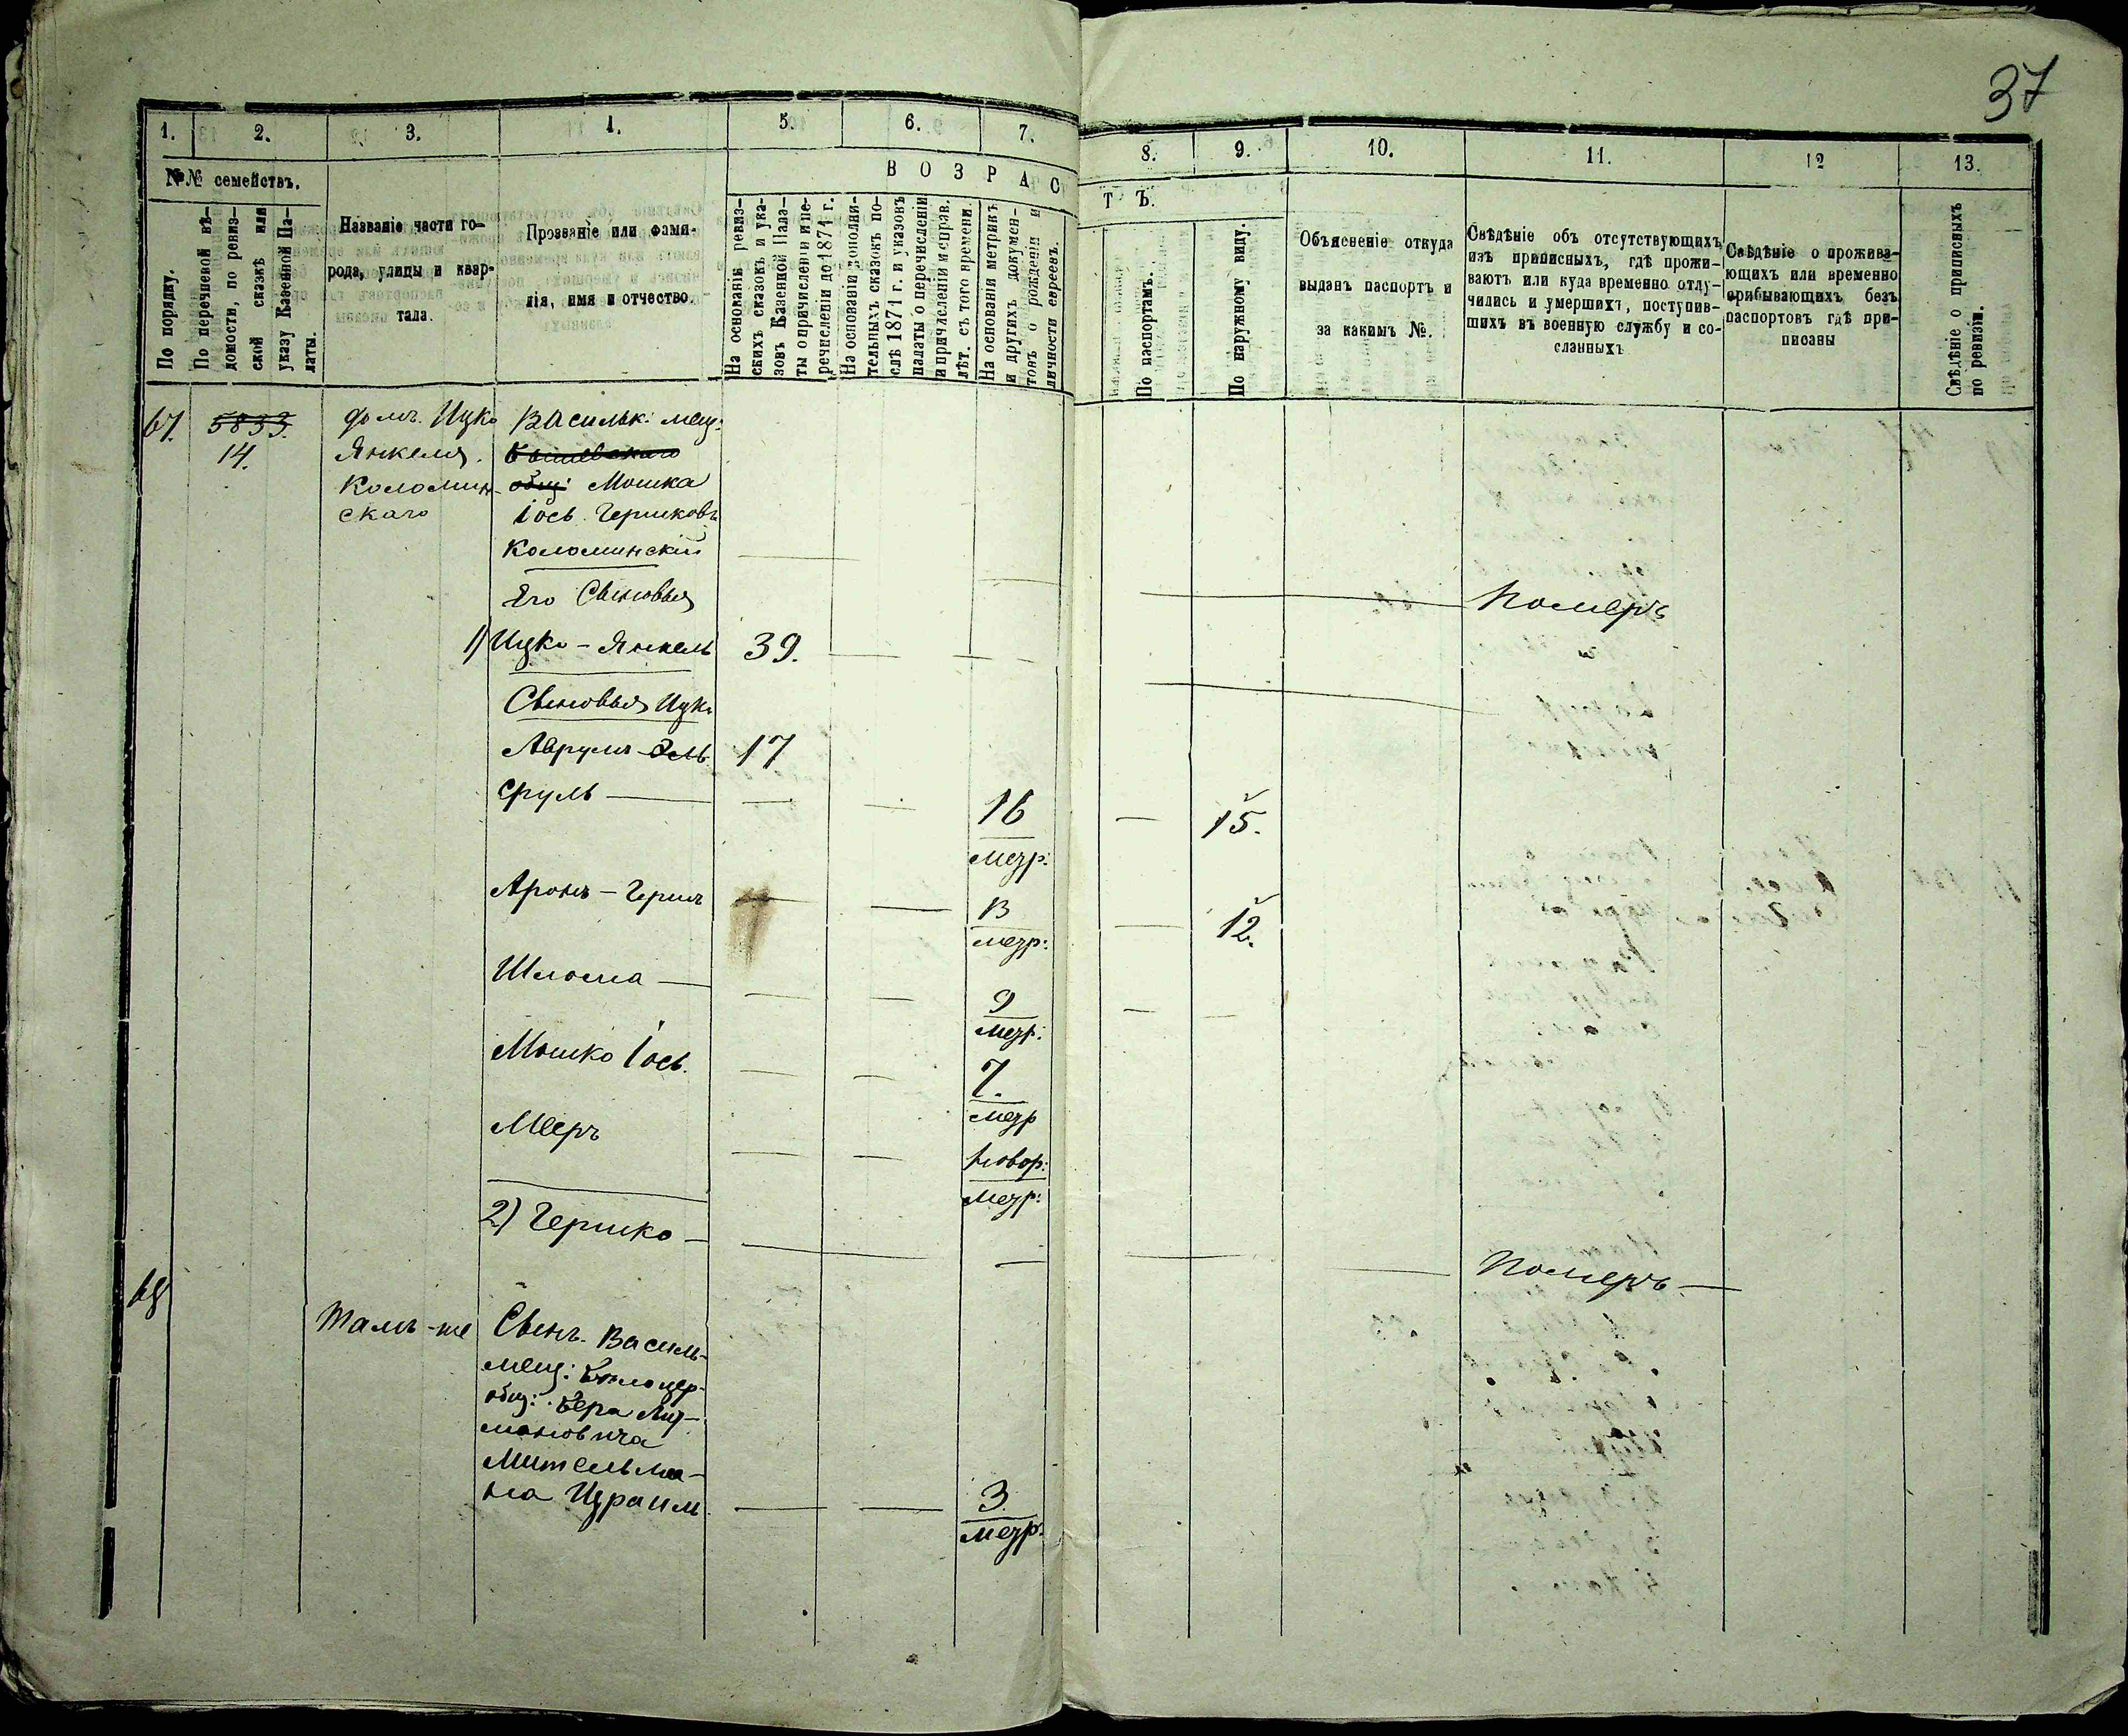 37
1. 2. 3. 4. 5. 6. 7. 8. 9. 10. 11. 12 13.
№№ семействъ.
По порядку.
По перечневой вѣ-
домости, по ревиз-
ской сказкѣ или
указу Казенной Па-
латы.
Названіе части го-
рода, улицы и квар-
тала.
Прозваніе или фами-
лія, имя и отчество.
ВОЗРАС
ТЪ.
На основаніи ревиз-
скихъ сказокъ и ука-
зовъ Казенной Пала-
ты о причисленіи и пе-
речисленіи до 1871 г.
На основаніи дополни-
тельныхъ сказокъ по-
слѣ 1871 г. и указовъ
палаты о перечисленіи
и причисленіи и справ.
лѣт. съ того времени.
На основаніи метрикъ
и другихъ докумен-
товъ о рожденіи и
личности евреевъ.
По паспортамъ.
По наружному виду.
Объясненіе откуда
выданъ паспортъ и
за какимъ №.
Свѣдѣніе объ отсутствующихъ
изъ приписныхъ, гдѣ прожи-
ваютъ или куда временно отлу-
чились и умершихъ, поступив-
шихъ въ военную службу и со-
сланныхъ
Свѣдѣніе о прожива-
ющихъ или временно
прибывающихъ безъ
паспортовъ гдѣ при-
писаны
Свѣдѣніе о приписныхъ
по ревизіи.
67. 5833. домъ Ицко Васильк: мещ:
14. Янкеля
Коломин- общ: Мошка
скаго Іось Гершковъ
Коломинскій
Его Сыновья Померъ
1) Ицко-Янкель 39.
Сыновья Ицк
Аврумъ-Эль 17
Сруль 16 15.
метр:
Аронъ-Герш 13 12.
метр:
Шлома 9
метр:
Мошко Іось. 7.
метр
Мееръ новор:
метр:
2) Гершко Померъ
68
Тамъ-же Сынъ Василь-
мещ: Бѣлоцер-
общ: Бера
мановича
Мительма-
на Израиль 3
метр: